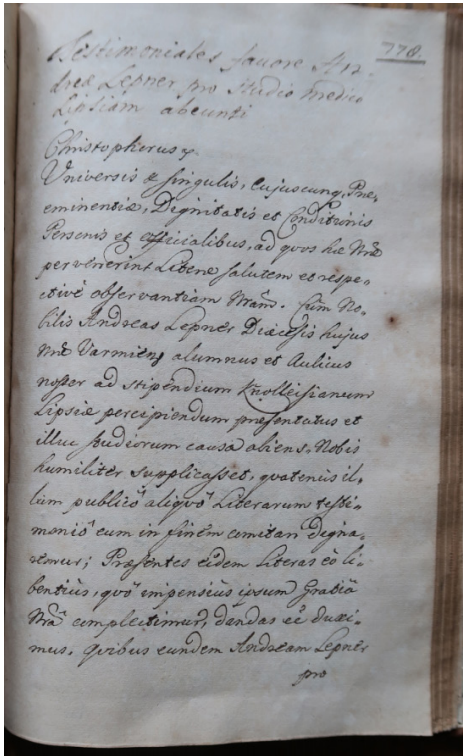 778.
Testimoniales favore An-
dreæ Lepner pro Studio medico
Lipsiam abeunti
Christopherus
Universis & singulis, cujuscunq, Præ-
eminentiæ, Dignitatis et Conditionis
Personis et officialibus, ad quos hæ Nræ
pervenerint Literæ salutem et respe-
ctivè observantiam Nram. Cùm No-
bilis Andreas Lepner Diœcesis hujus
Nræ Varmiens alumnus et Aulicus
noster ad stipendium Knolleisianum
Lipsiæ percipiendum præsentatus et
illuc studiorum causa abiens, Nobis
humiliter supplicasset, quatenùs il-
lum publicô aliquô Literarum testi-
moniô eum in finem comitari digna-
remur; Præsentes eidem Literas eò li-
bentiùs, quô impensiùs ipsum Gratiâ
Nrâ complectimur, dandas eê duxi-
mus, quibus eundem Andream Lepner
pro